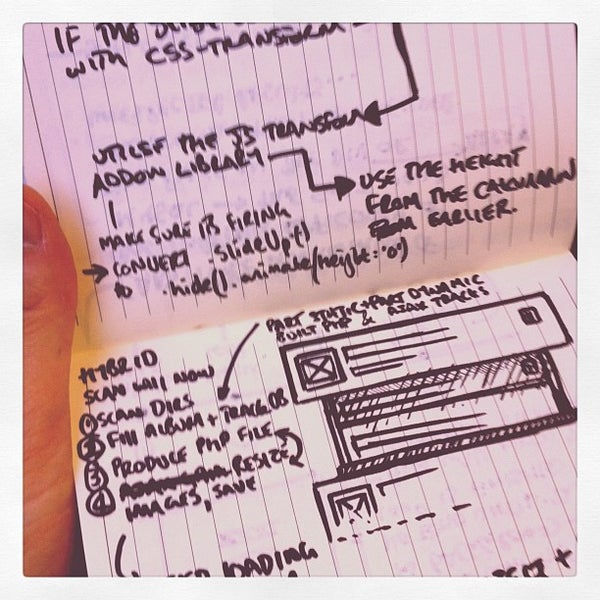 IF THE SLIDE
WITH CSS-TRANSFORM
UTILISE THE JS TRANSFORM
ADDON LIBRARY
USE THE HEIGHT
FROM THE CALCULATION
FROM EARLIER.
MAKE SURE IT'S FIRING
CONVERT slideUp()
to .hide().animate(height:'0')
PART STATIC + PART DYNAMIC
BUILT PHP & AJAX TRACKS
HYBRID
SCAN NOW
① SCAN DIRS
② FILL ALBUM + TRACK DB
③ PRODUCE PHP FILE
④ RESIZE
IMAGES, SAVE
LOADING